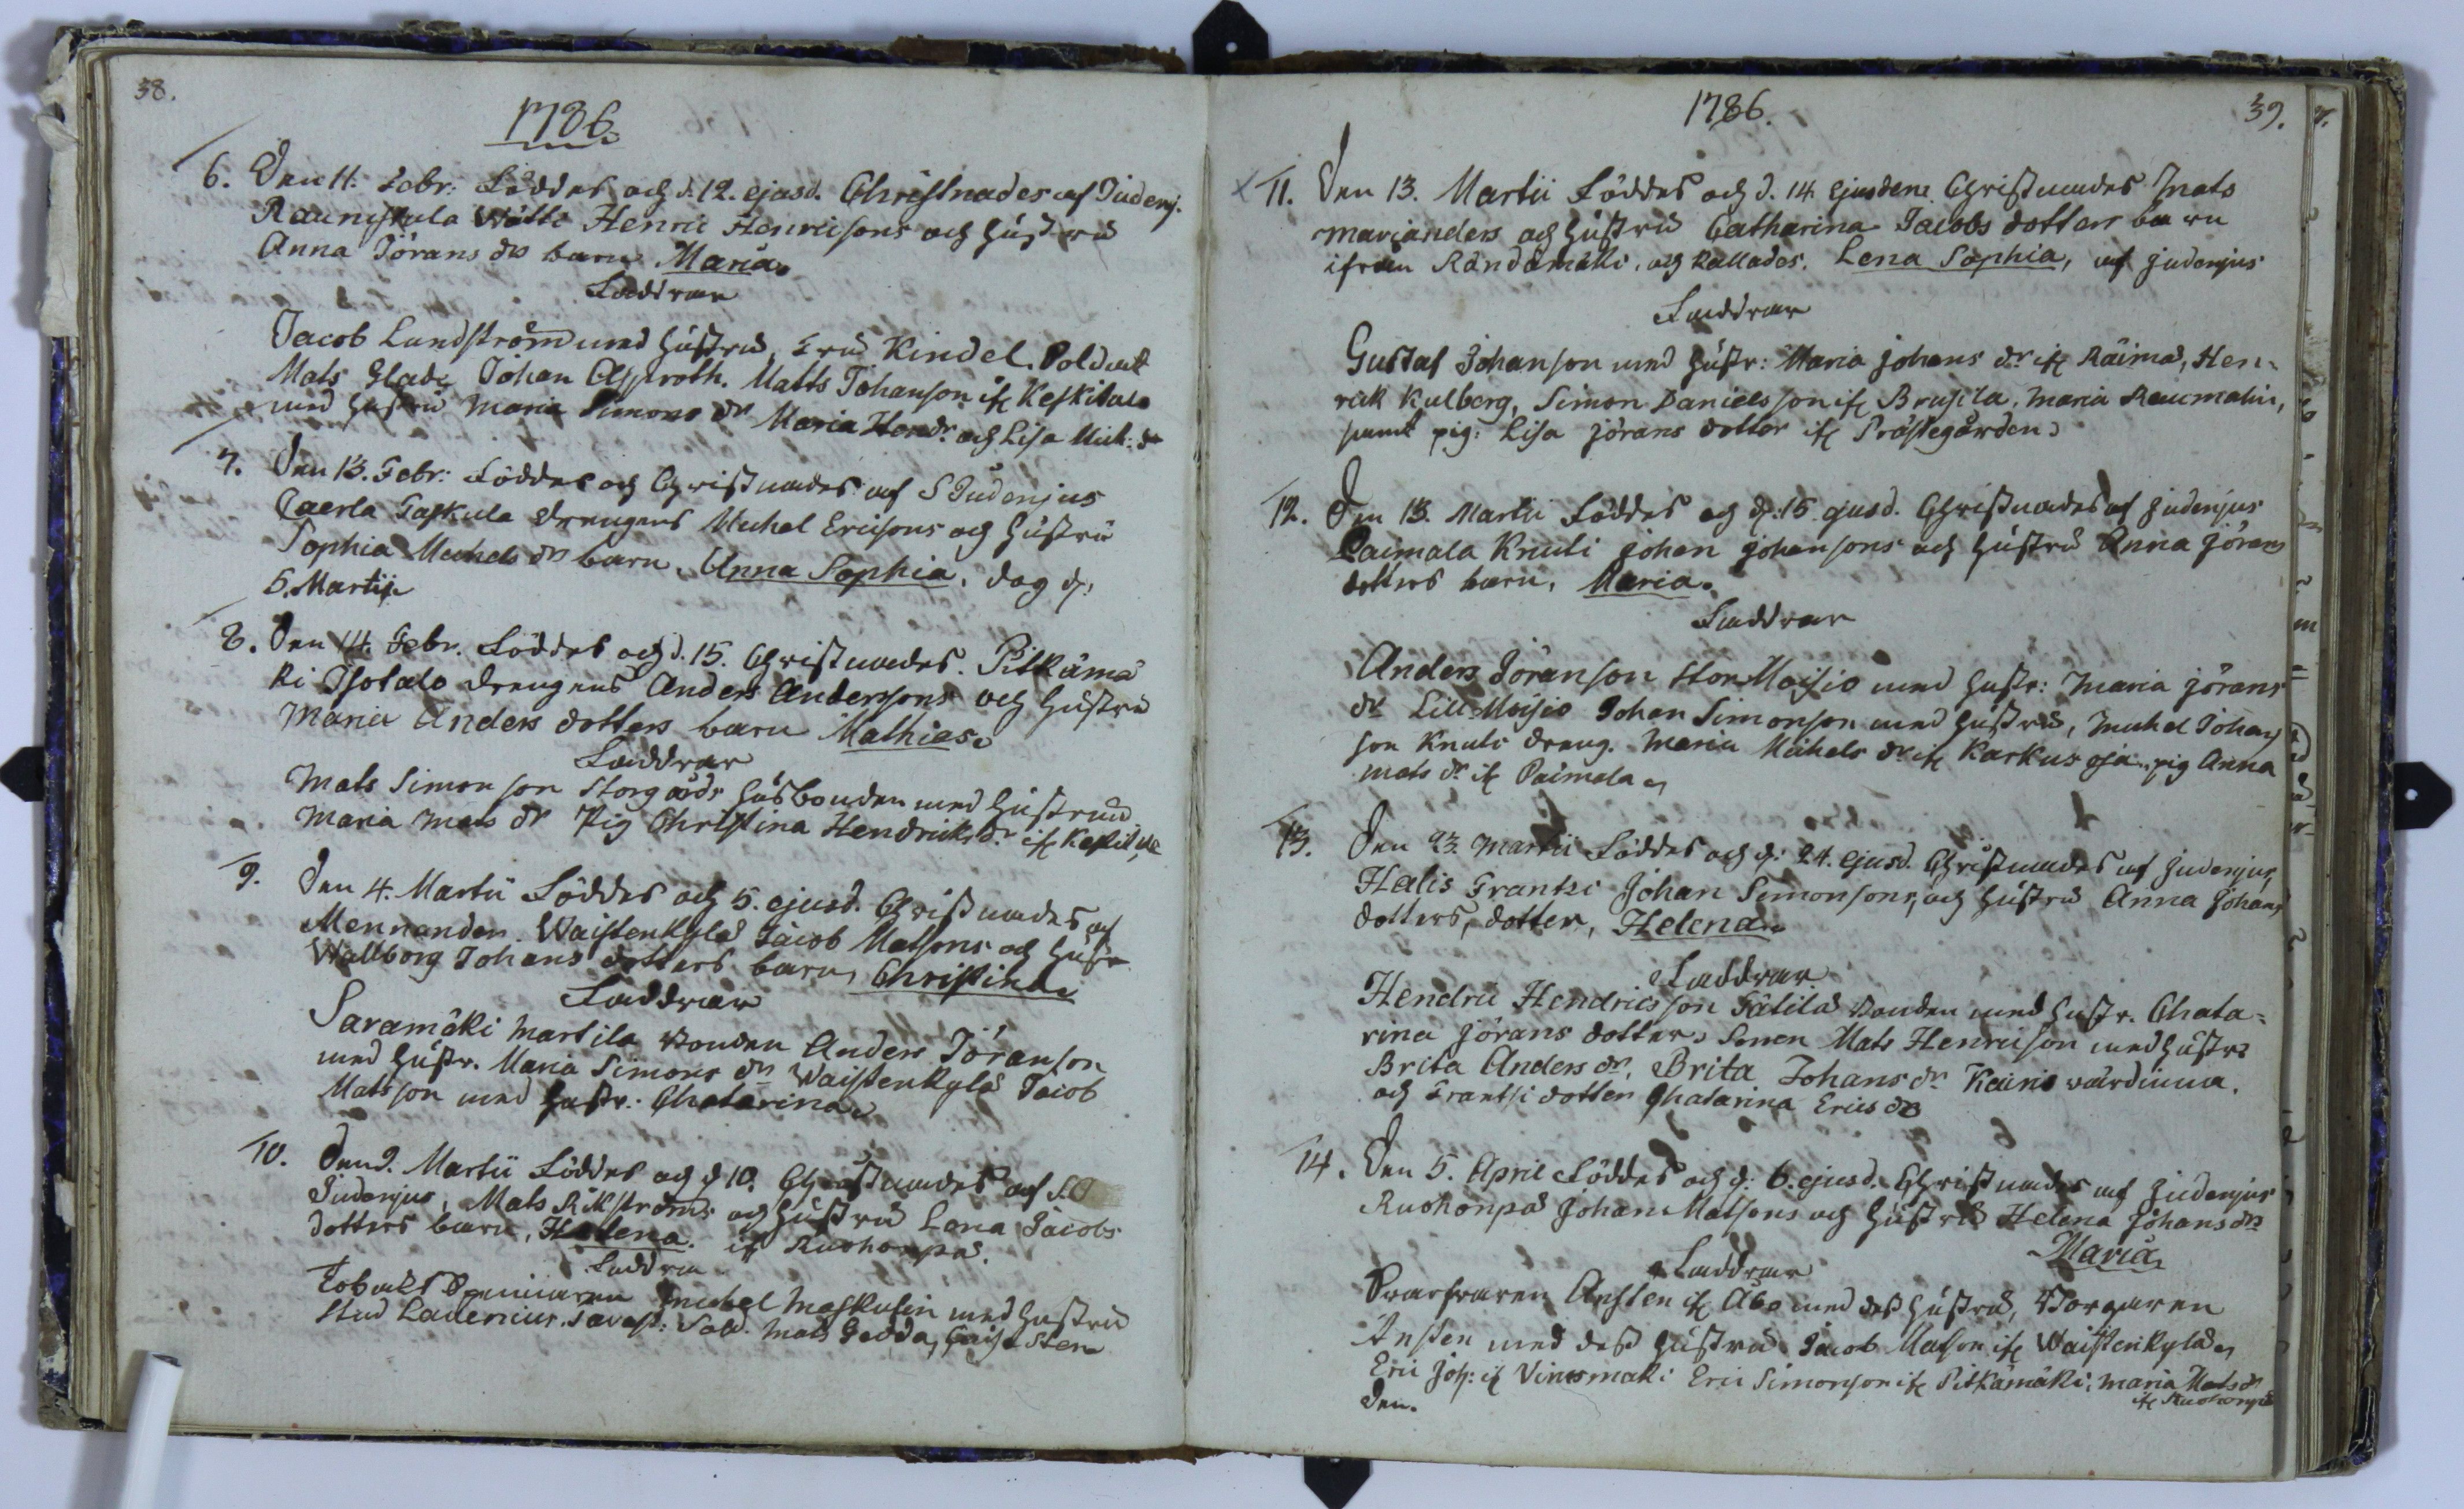 38.
1786.
6. Den 11. Febr: Föddes och d. 12. ejusd. Christnades af Judenj.
Raunistula Wätti Henric Henricsons och Hustru
Anna Jörans dr barn Maria.
Faddrar
Jacob Lundström med Hustru, Fru Kindel. Soldat
Mats Glad, Johan Asproth. Matts Johanson if. Keskitalo
med Hustru Maria Simons dr Maria Hendr: och Lisa Mich: dr
7. Den 13. Febr: Föddes och Christnades af S Judenjus
Caerla Taskula Drengens Michel Ericsons och Hustru
Sophia Michels dr barn, Anna Sophia. dog d.
5. Martii.
8. Den 14. Febr. Föddes och d. 15. Christnades. Pitkämä
ki Isotalo Drengens Anders Anderssons och Hustru
Maria Anders dotters barn Mathias.
Faddrar
Mats Simonson Storgårds Husbonden med Hustru
Maria Mats dr Pig Christina Hendricks dr if Keskit
9. Den 4. Martii Föddes och 5. ejusd. Christnades af
Mennander. Waistenkylä Jacob Matsons och Hustr
Wallborg Johans dotters barn, Christina.
Faddrar
Saramäki Martila Bonden Anders Jöranson
med Hustr. Maria Simons dr Waistenkylä Jacob
Matsson med Hustr: Chatarina.
10. Den 9. Martii Föddes och d 10. Christnades af S.
Judenjus, Mats Rikströms och Hustru Lena Jacobs
dotters barn, Helena. if Ruohonpä.
Faddrar
Tobaks Spinnaren Michel Maskulin med Hustru
Stud Ladenius. Tavast: Sold. Mats Gedda, Caisa Sten
1786.
39.
11. Den 13. Martii Föddes och d. 14. ejusdem Christnades Mats
Marianders och Hustru Catharina Jacobs dotters barn
ifrån Rändämäki. och kallades. Lena Sophia, af Judenjus
Faddrar
Gustaf Johanson med Hustr: Maria Johans dr if Räimä, Hen-
rick Kulberg, Simon Danielsson if Brusila, Maria Raumalin,
samt pig: Lisa Jörans dotter if Prästegården.
12. Den 13. Martii Föddes och d. 15. ejusd. Christnades af Judenjus
Paimala Knuti Johan Johansons och Hustru Anna Jörans
dotters barn, Maria.
Faddrar
Anders Jöranson Stor Moisio med Hustr: Maria Jörans
dr Lill Moisio Johan Simonson med Hustru, Michel Johan
son Knuts dreng. Maria Michels dr if Karkus oja, pig Anna
Mats dr if Paimala.
13. Den 23. Martii Föddes och d. 24. ejusd. Christnades af Judenjus,
Halis Frantsi Johan Simonsons, och Hustru Anna Johans
dotters, dotter, Helena.
Faddrar.
Hendric Hendricsson Tätilä Bonden med Hustr. Chata-
rina Jörans dotter, Sonen Mats Henricson med Hustru
Brita Anders dr, Brita Johans dr Kairis värdinna.
och Frantsi dotter Chatarina Erics dr
14. Den 5. April Föddes och d: 6. ejusd. Christnades af Judenjus
Ruohonpä Johan Matsons och Hustrus Helena Johans drs
Maria
Faddrar
Swarfvaren Ansten if Åbo med dess Hustru, Borgaren
Ansten med dess Hustru Jacob Matson if Waistenkylä,
Eric Joh: if Vinesmäki Eric Simonson if Pitkämäki, Maria Mats dr
if Ruohonpä
den.